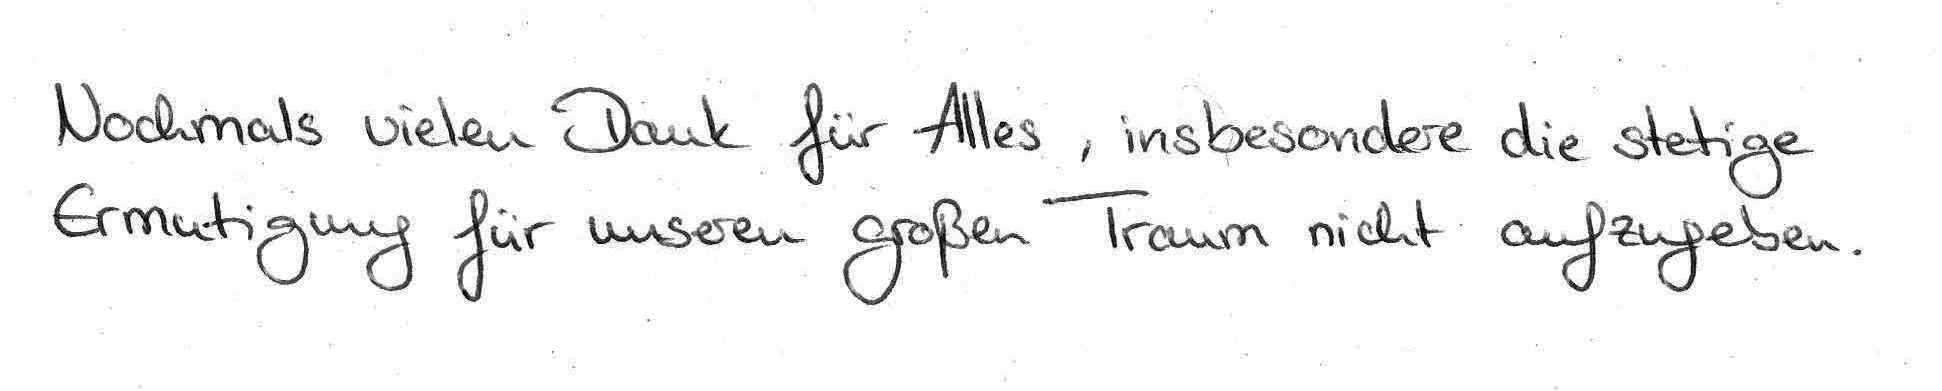 Nochmals vielen Dank für Alles, insbesondere die stetige
Ermutigung für unseren großen Traum nicht aufzugeben.